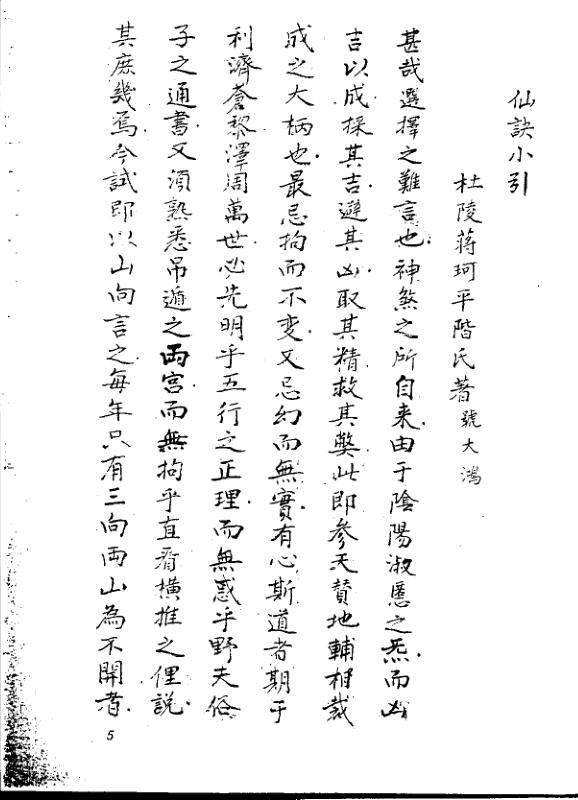 仙訣小引
杜陵蔣珂平階氏著號大鴻
甚哉選擇之難言也神煞之所自来由于陰陽淑慝之炁而凶
吉以成採其吉避其凶取其精救其弊此即參天贊地輔相裁
成之大柄也最忌拘而不变又忌幻而無實有心斯道者期于
利濟蒼黎澤周萬世必先明乎五行之正理而無惑乎野夫俗
子之通書又須熟悉吊遁之両宫而無拘乎直看橫推之俚說
其庶幾焉今試即以山向言之每年只有三向両山為不開者
5